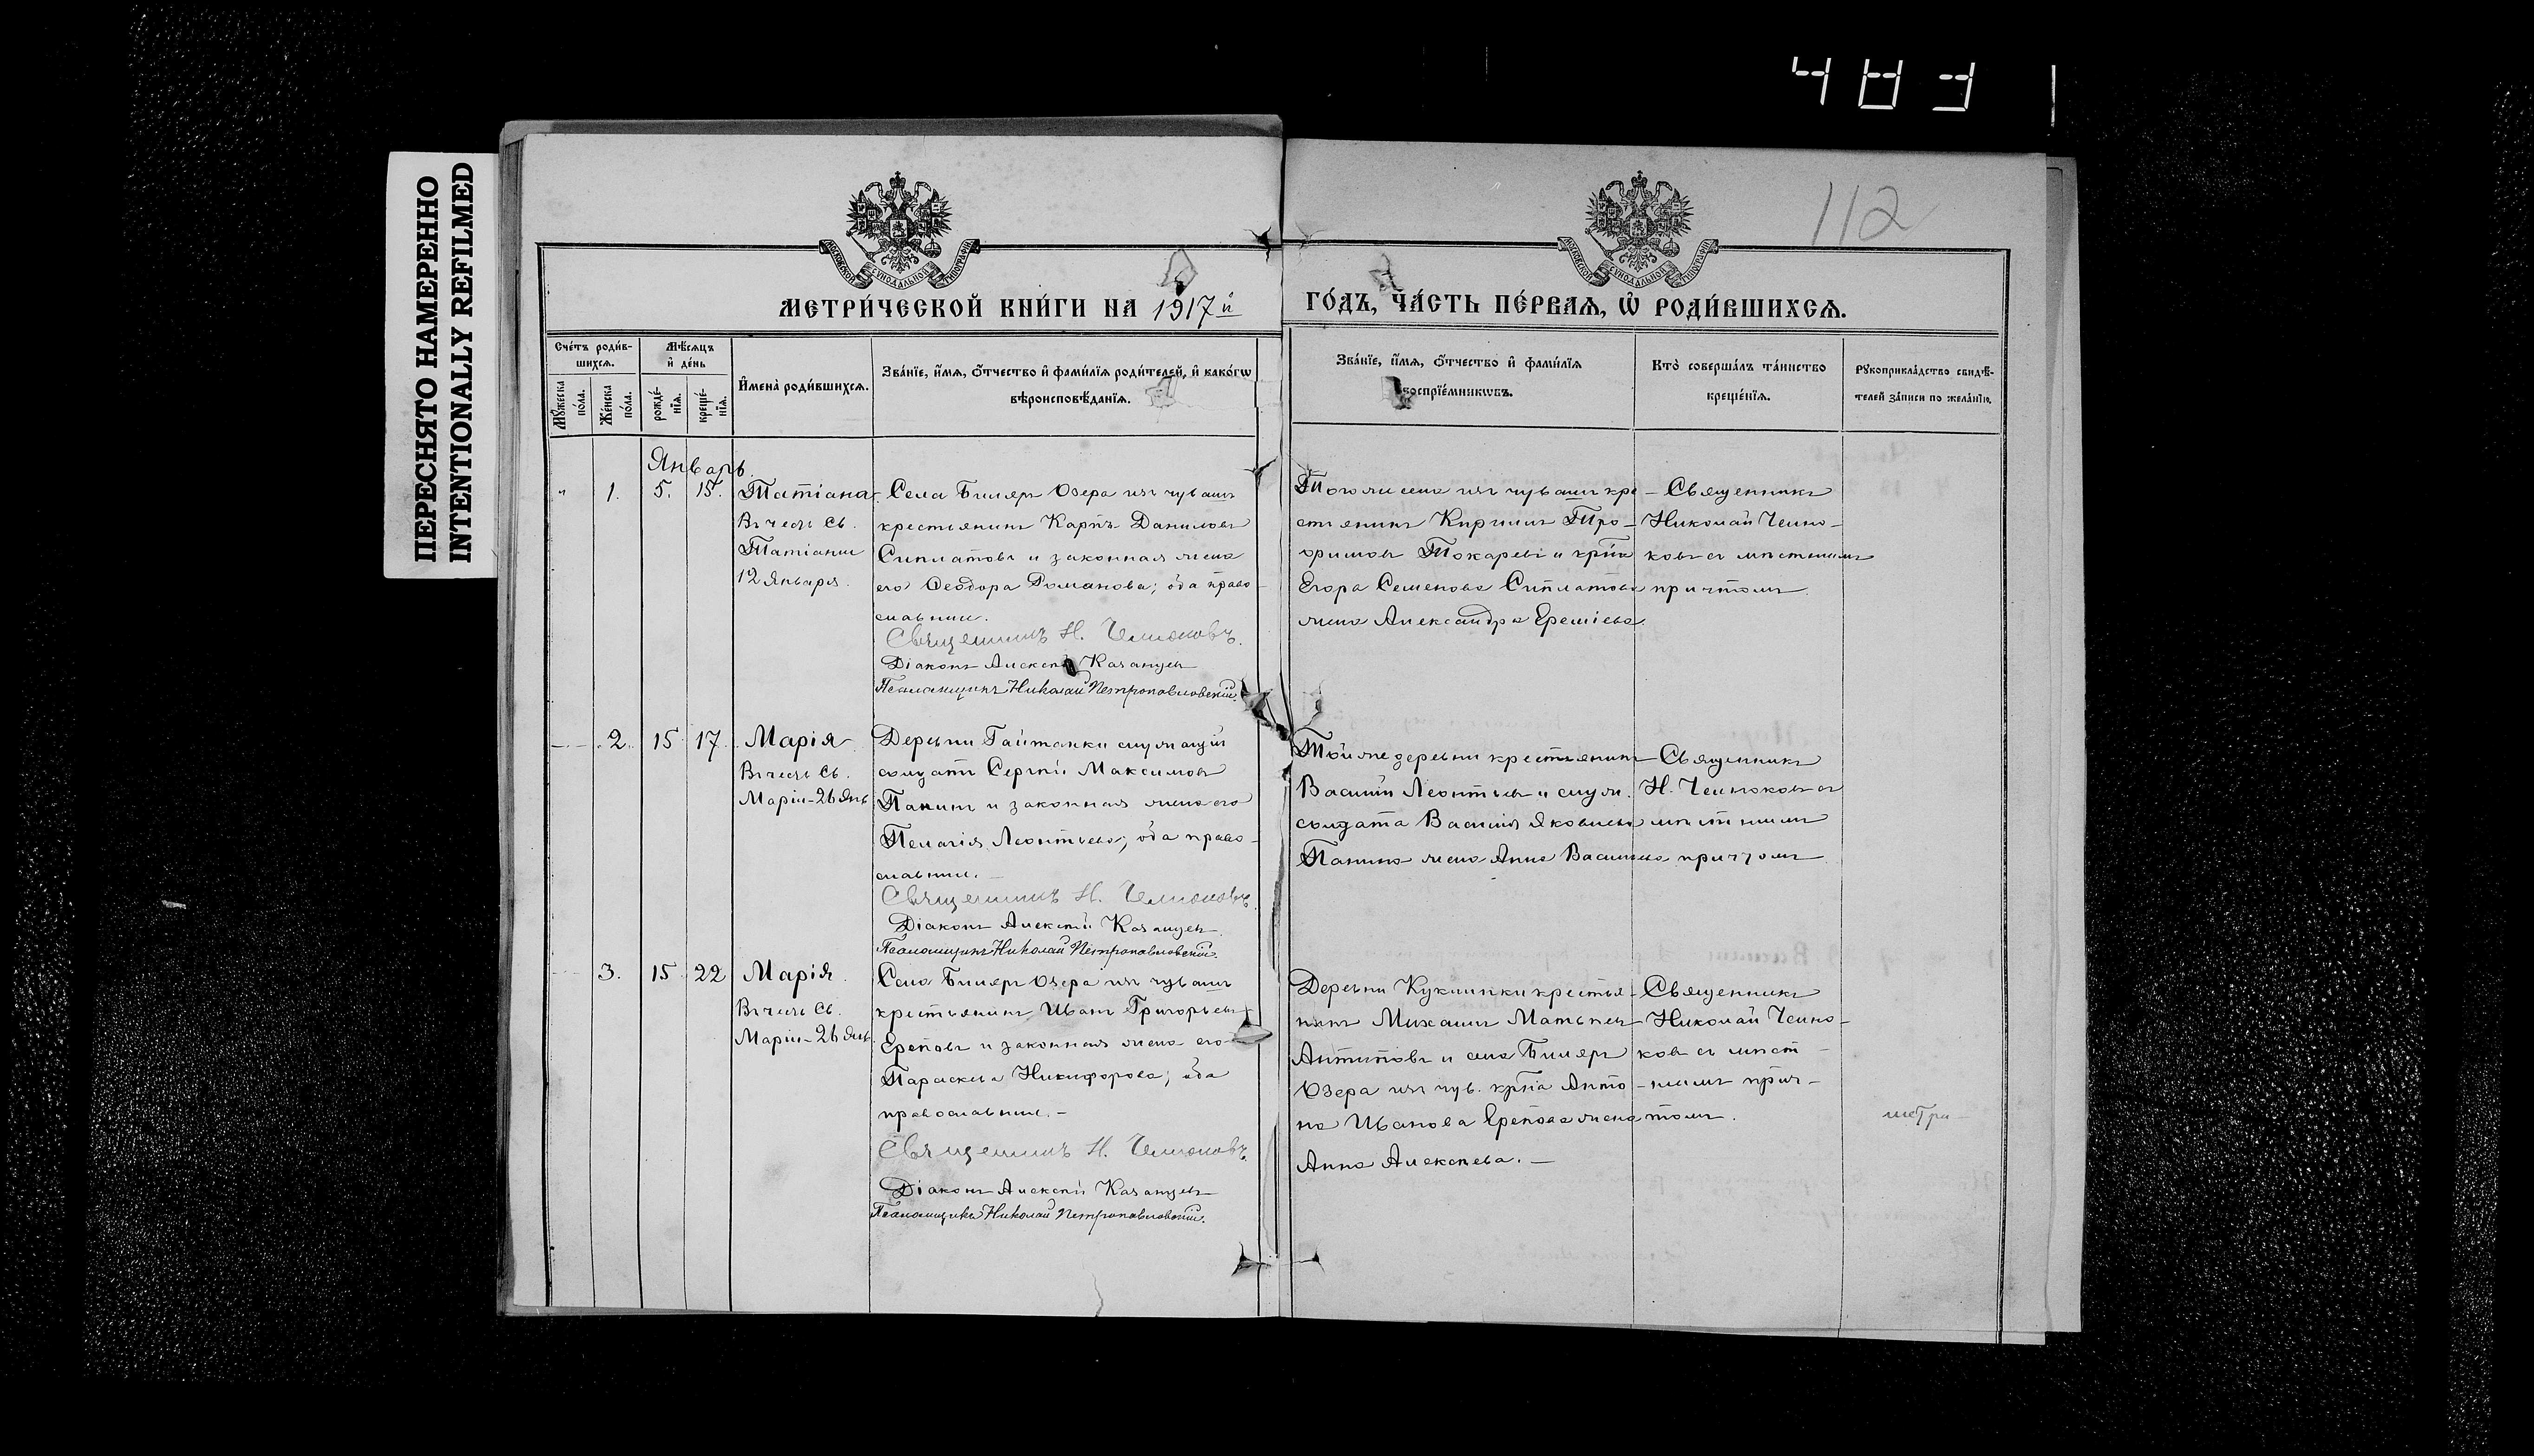 483
ПЕРЕСНЯТО НАМЕРЕННО
INTENTIONALLY REFILMED
112
МОСКОВСКОЙ СУНОДАЛЬНОЙ ТИПОГРАФІИ
МОСКОВСКОЙ СУНОДАЛЬНОЙ ТИПОГРАФІИ
МЕТРИ́ЧЕСКОЙ КНИ́ГИ НА 1917й
ГО́ДЪ, ЧА́СТЬ ПЕ́РВАЯ, Ѡ҆ РОДИ́ВШИХСЯ.
Сче́тъ роди́в-
шихся.
Мѣ́сяцъ
и҆ де́нь
Му́жеска
по́ла.
Же́нска
по́ла.
рожде́-
нїя.
креще́-
нїя.
И҆мена̀ роди́вшихся.
Зва́нїе, и҆́мя, ѻ҆́тчество и҆ фами́лїя роди́телей, и҆ како́гѡ
вѣроисповѣ́данїя.
Зва́нїе, и҆́мя, ѻ҆́тчество и҆ фами́лїя
воспрїе́мникѡвъ.
Кто̀ соверша́лъ та́инство
креще́нїя.
Рукоприкла́дство свидѣ́-
телей за́писи по жела́нїю.
Январь.
" 1. 5. 15. Татіана
Въ честь св.
Татіаны
12 Января.
Села Биляръ Озера изъ чувашъ
крестьянинъ Карпъ Даниловъ
Сиплатовъ и законная жена
его Ѳеодора Романова; оба право-
славные.
Священникъ Н. Челноковъ.
Діаконъ Алексѣй Казанцевъ
Псаломщикъ Николай Петропавловскій.
Того же села изъ чувашъ кре-
стьянинъ Кириллъ Тро-
фимовъ Токаревъ и кр-на
Егора Семенова Сиплатова
жена Александра Еремѣева.
Священникъ
Николай Челно-
ковъ съ мѣстнымъ
причтомъ.
2. 15 17. Марія
Въ честь св.
Маріи - 26 Янв.
Деревни Гайтанки служащій
солдатъ Сергѣй Максимовъ
Панинъ и законная жена его
Пелагія Леонтьева; оба право-
славные. —
Священникъ Н. Челноковъ.
Діаконъ Алексѣй Казанцевъ.
Псаломщикъ Николай Петропавловскій.
Той же деревни крестьянинъ
Василій Леонтьевъ и служ.
солдата Василія Яковлева
Панина жена Анна Васильева
Священникъ
Н. Челноковъ съ
мѣстнымъ
причтомъ
3. 15 22 Марія.
Въ честь св.
Маріи - 26 Янв.
Села Биляръ Озера изъ чувашъ
крестьянинъ Иванъ Григорьевъ
Ереповъ и законная жена его
Параскева Никифорова; оба
православные. —
Священникъ Н. Челноковъ.
Діаконъ Алексѣй Казанцевъ
Псаломщикъ Николай Петропавловскій.
Деревни Куклинки крестья-
нинъ Михаилъ Матвѣевъ
Антиповъ и села Биляръ
Озера изъ чув. кр-на Анто-
на Иванова Ерепова жена
Анна Алексѣева. —
Священникъ
Николай Челно-
ковъ съ мѣст-
нымъ прич-
томъ.
метри-